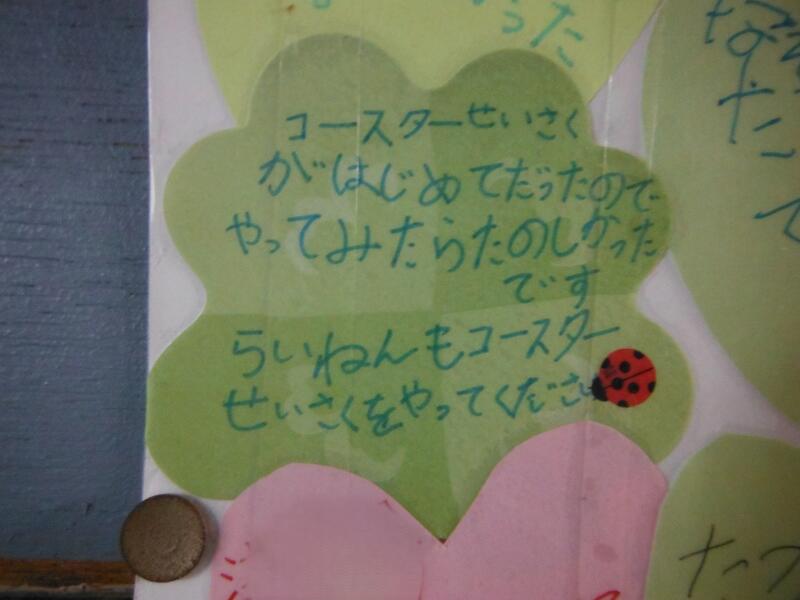 った
コースターせいさく
がはじめてだったので
やってみたらたのしかった
です
らいねんもコースター
せいさくをやってくださ